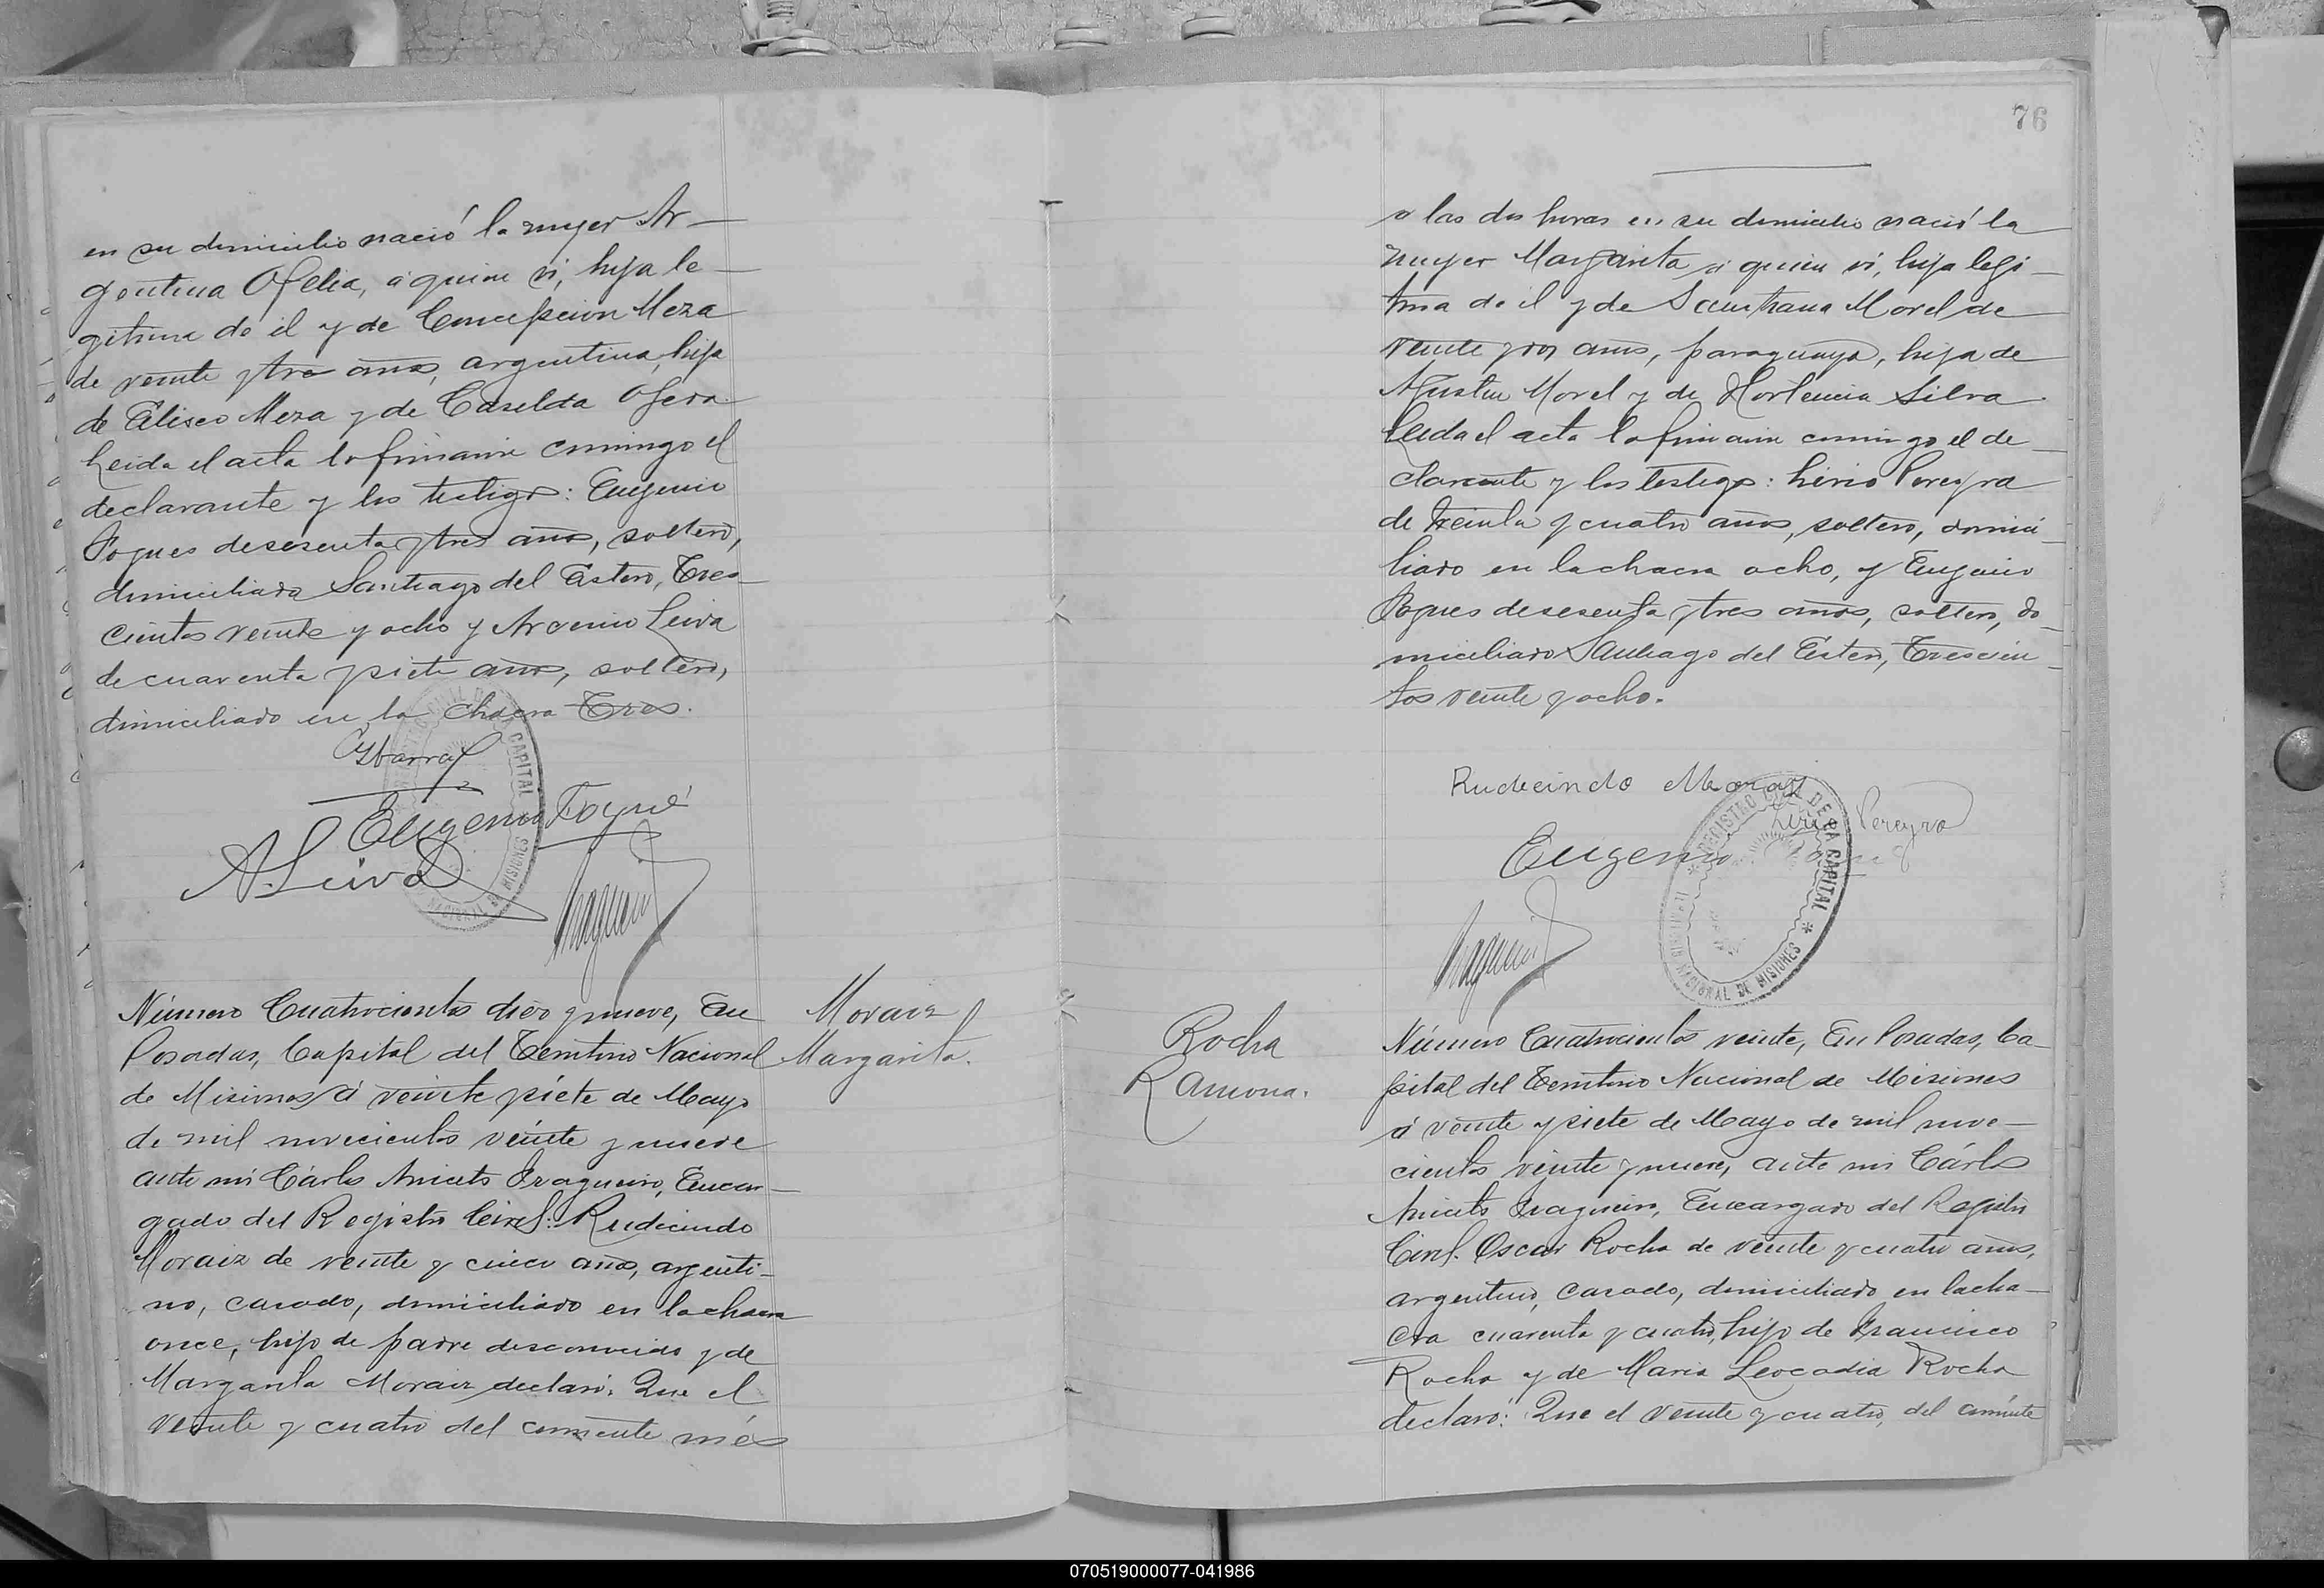 en su domicilio nació la mujer Ar-
gentina Ofelia, á quien vi, hija le-
gitima de él y de Concepcion Meza
de veinte y tres años, argentina, hija
de Eliseo Meza y de Casilda Ojeda
Leida el acta la firman conmigo el
declarante y los testigos: Eugenio
Foques de sesenta y tres años, soltero,
domiciliado Santiago del Estero, Tres-
cientos veinte y ocho y Arsenio Leiva
de cuarenta y siete años, soltero,
domiciliado en la chacra Tres.
Ybarra
Eugenio Foqué
A. Leiva
Número Cuatrocientos diez y nueve, En
Posadas, Capital del Territorio Nacional
de Misiones á veinte y siete de Mayo
de mil novecientos veinte y nueve
ante mi Cárlos Aniceto Fragueiro, Encar-
gado del Registro Civil: Rudecindo
Moraiz de veinte y cinco años, argenti-
no, casado, domiciliado en la chacra
once, hijo de padre desconocido y de
Margarita Moraiz declaró: Que el
veinte y cuatro del corriente més
Moraiz
Margarita.
76
a las dos horas en su domicilio nació la
mujer Margarita, á quien vi, hija legi-
tima de él y de Morel de
veinte y dos años, paraguaya, hija de
Agustin Morel y de Hortencia Silva
Leida el acta la firman conmigo el de-
clarante y los testigos: Lirio Pereyra
de treinta y cuatro años, soltero, domici-
liado en la chacra ocho, y Eugenio
Foques de sesenta y tres años, soltero, do-
miciliado Santiago del Estero, Trescien-
tos veinte y ocho.
Rudecindo Moraiz
Lirio Pereyra
Eugenio
REGISTRO CIVIL DE LA CAPITAL * TERRITORIO NACIONAL DE MISIONES *
Rocha
Ramona.
Número Cuatrocientos veinte, En Posadas, Ca-
pital del Territorio Nacional de Misiones
á veinte y siete de Mayo de mil nove-
cientos veinte y nueve, ante mi Cárlos
Aniceto Fragueiro, Encargado del Registro
Civil. Oscar Rocha de veinte y cuatro años,
argentino, casado, domiciliado en la cha-
cra cuarenta y cuatro, hijo de Francisco
Rocha y de Maria Leocadia Rocha
declaró: Que el veinte y cuatro, del corriente
070519000077-041986